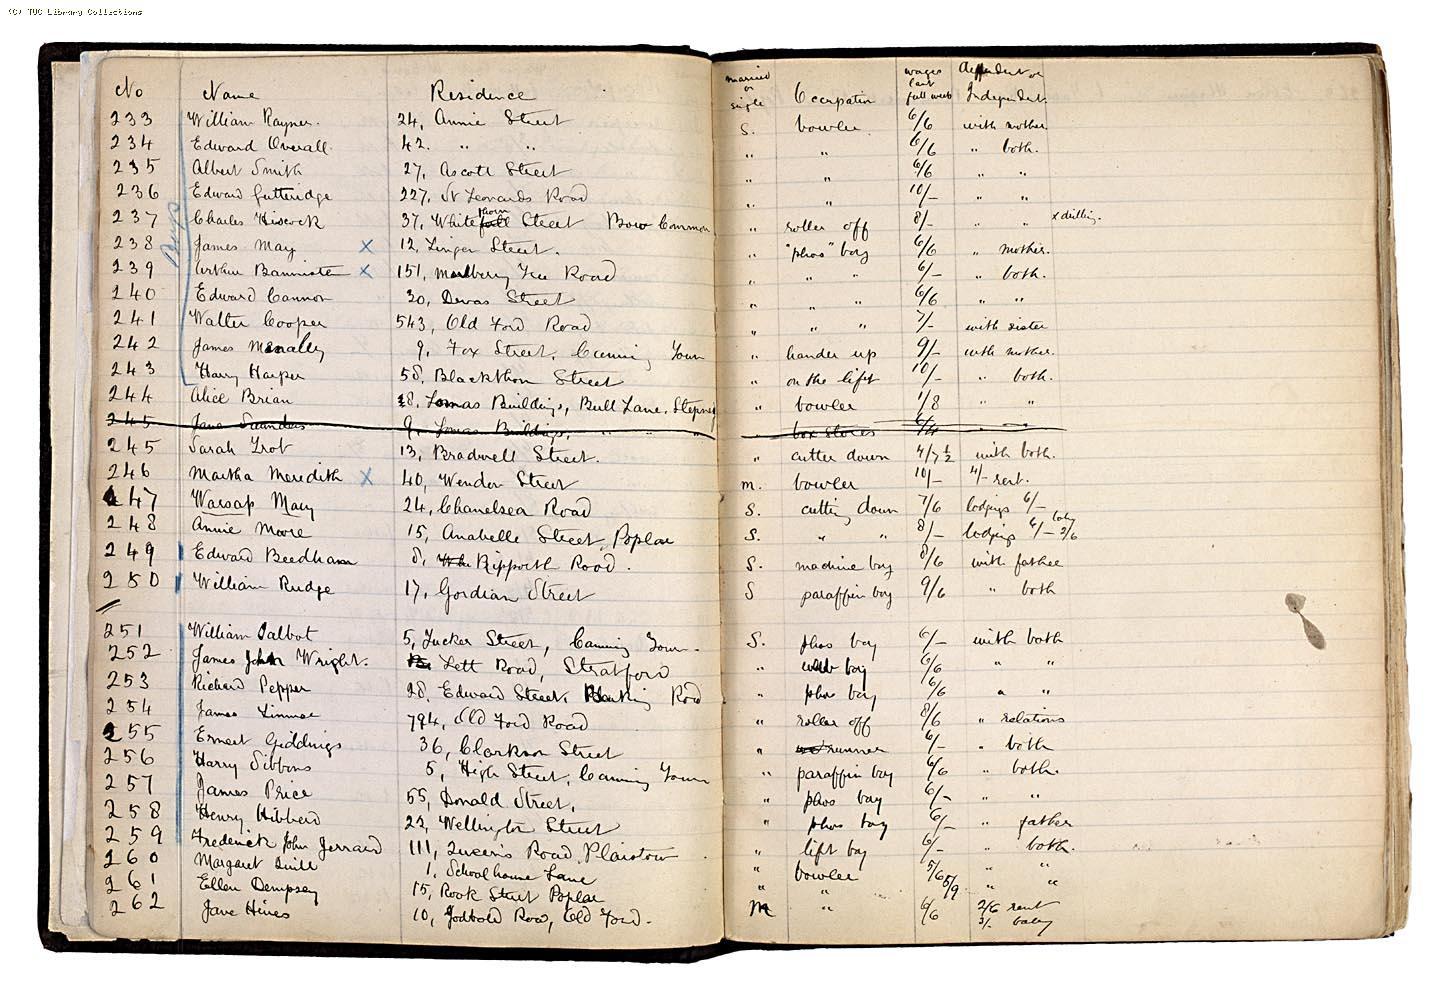 (C) TUC Library Collections
No Name Residence married or single Occupation wages last full week dependent or Independent.
233 William Rayner. 24, Annie Street S. bowler. 6/6 with mother
234 Edward Overall. 42. " " " " 6/6 " both.
235 Albert Smith 27, Ascott Street " " 6/6 " "
236 Edward Gutteridge 227, St Leonards Road " " 10/- " "
Boys
237 Charles Hiscock 37, Whitethorn Street Bow Common " roller off 8/- " " x drilling.
238 James May x 12, Linger Street. " "phos" boy 6/6 " mother.
239 Arthur Bannister x 151, Mulberry Tree Road " " " 6/- " both.
240 Edward Cannon 30, Devas Street " " " 6/6 " "
241 Walter Cooper 543, Old Ford Road " " " 7/- with sister
242 James Menally 9, Fox Street, Canning Town " hander up 9/- with mother.
243 Harry Harper 58, Blackthorn Street " on the lift 10/- " both.
244 Alice Brian 8, Lomas Buildings, Bull Lane. Stepney " bowler 1/8 " "
245 Jane Saunders 9, Lomas Buildings, " " " " box stores 6/4 " "
245 Sarah Trot 13, Bradwell Street. " cutter down 4/7½ with both.
246 Martha Meredith x 40, Wendon Street m. bowler 10/- 4/- rent.
247 Warsap Mary 24, Chanelsea Road S. cutting down 7/6 lodgings 6/-
248 Annie Moore 15, Anabelle Street, Poplar S. " " 8/- lodgings 6/- baby 2/6
249 Edward Beedham 8, Rippoth Road. S. machine boy 8/6 with father
250 William Rudge 17, Gordian Street S paraffin boy 9/6 " both
251 William Talbot 5, Tucker Street, Canning Town. S. phos boy 6/- with both
252 James John Wright. Lett Road, Stratford " boy 6/6 " "
253 Richard Pepper 28, Edward Street, Barking Road " phos boy 6/6 " "
254 James Linmer 794, Old Ford Road " roller off 8/6 " relations
255 Ernest Giddings 36, Clarkson Street " runner 6/- " both
256 Harry Sibbons 5, High Street, Canning Town " paraffin boy 6/6 " both.
257 James Price 55, Donald Street. " phos boy 6/- " "
258 Henry Hibberd 22, Wellington Street " phos boy 6/- " father
259 Frederick John Jerrard 111, Queen's Road, Plaistow " lift boy 6/- " both.
260 Margaret Quill 1, Schoolhouse Lane " bowler 5/6 " "
261 Ellen Dempsey 15, Rook Street Poplar " " 5/9 " "
262 Jane Hines 10, Godbold Row, Old Ford. M " 6/6 2/6 rent
3/- baby